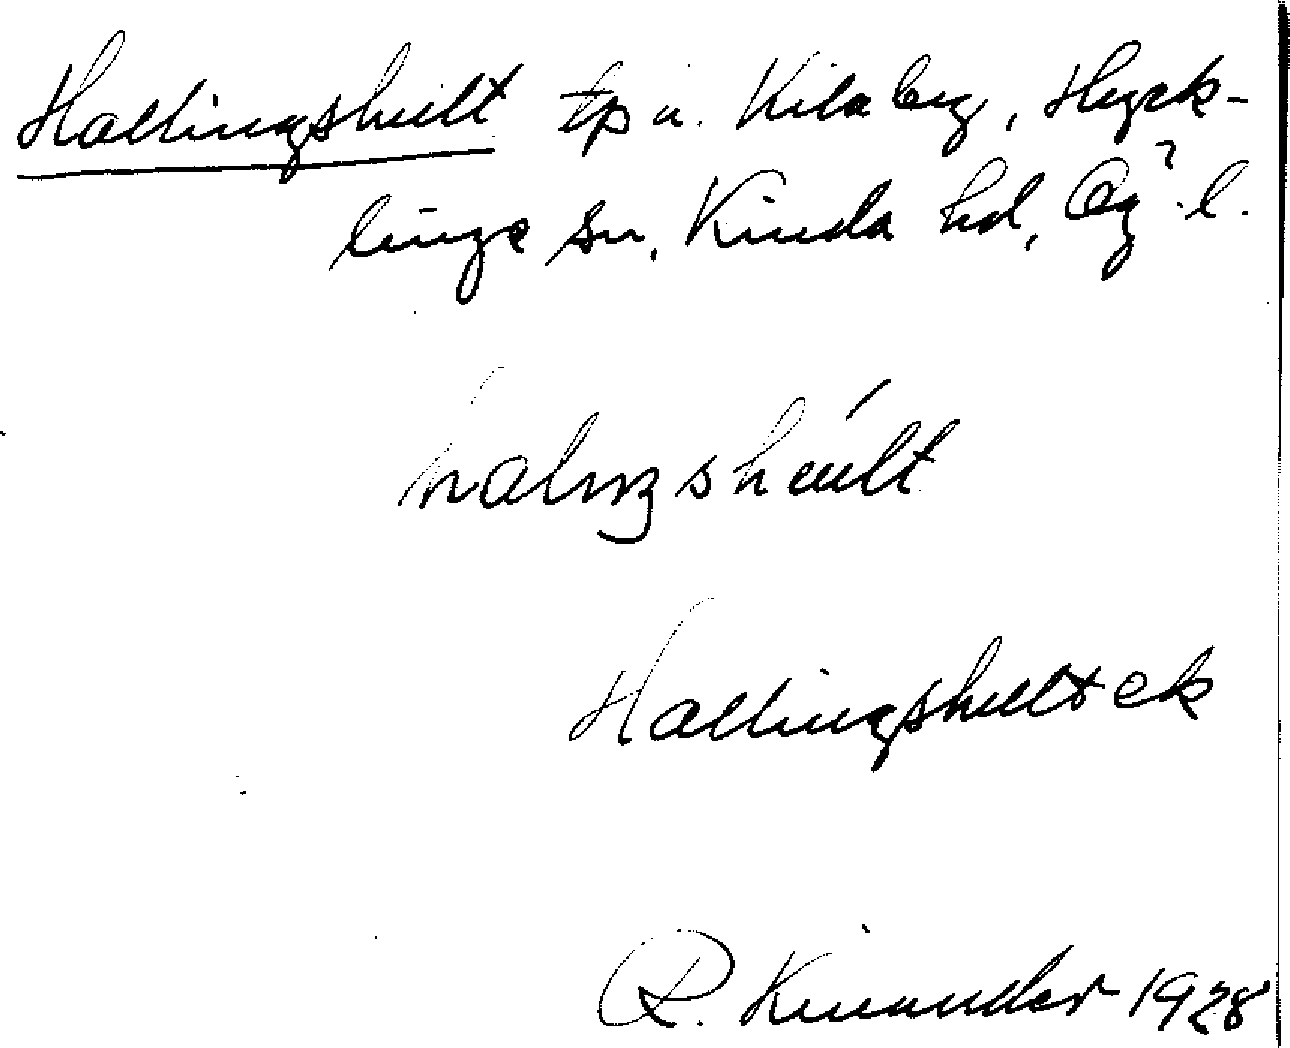 Hallingshult tp u. Kilaberg, Hyck-
linge sn, Kinda hd, Ög. l.
Hallingshult ek
R. Kinander 1928